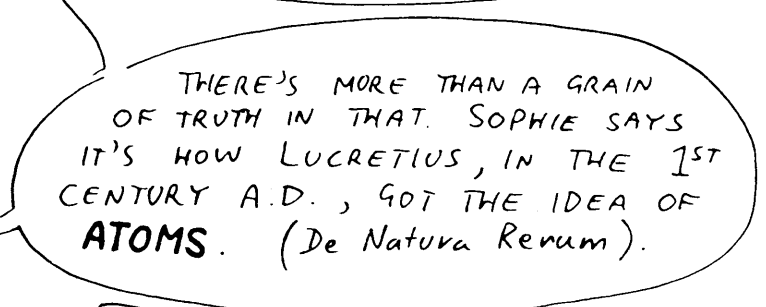 THERE'S MORE THAN A GRAIN
OF TRUTH IN THAT. SOPHIE SAYS
IT'S HOW LUCRETIUS, IN THE 1ST
CENTURY A.D., GOT THE IDEA OF
ATOMS. (De Natura Rerum).